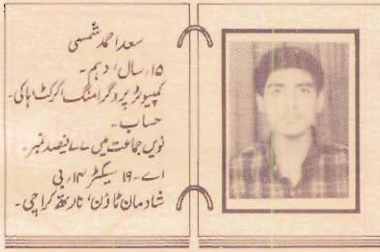 سعد احمد شمسی
۱۵ سال، دہم۔
کمپیوٹر پروگرامنگ، کرکٹ، ہاکی۔
حساب۔
نویں جماعت میں ۷۷ فیصد نمبر۔
اے۔۱۹ سیکٹر ۱۴/بی
شادمان ٹاؤن، نارتھ کراچی۔